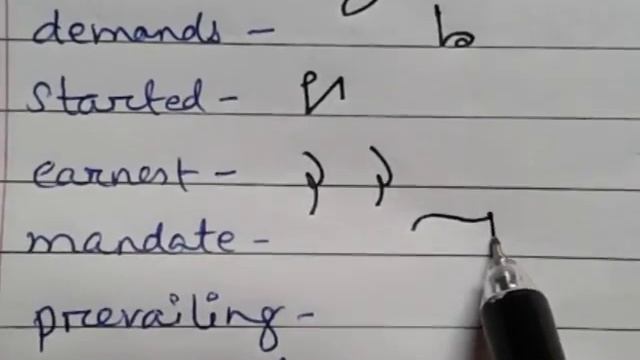 demands -
started -
earnest -
mandate -
prevailing -